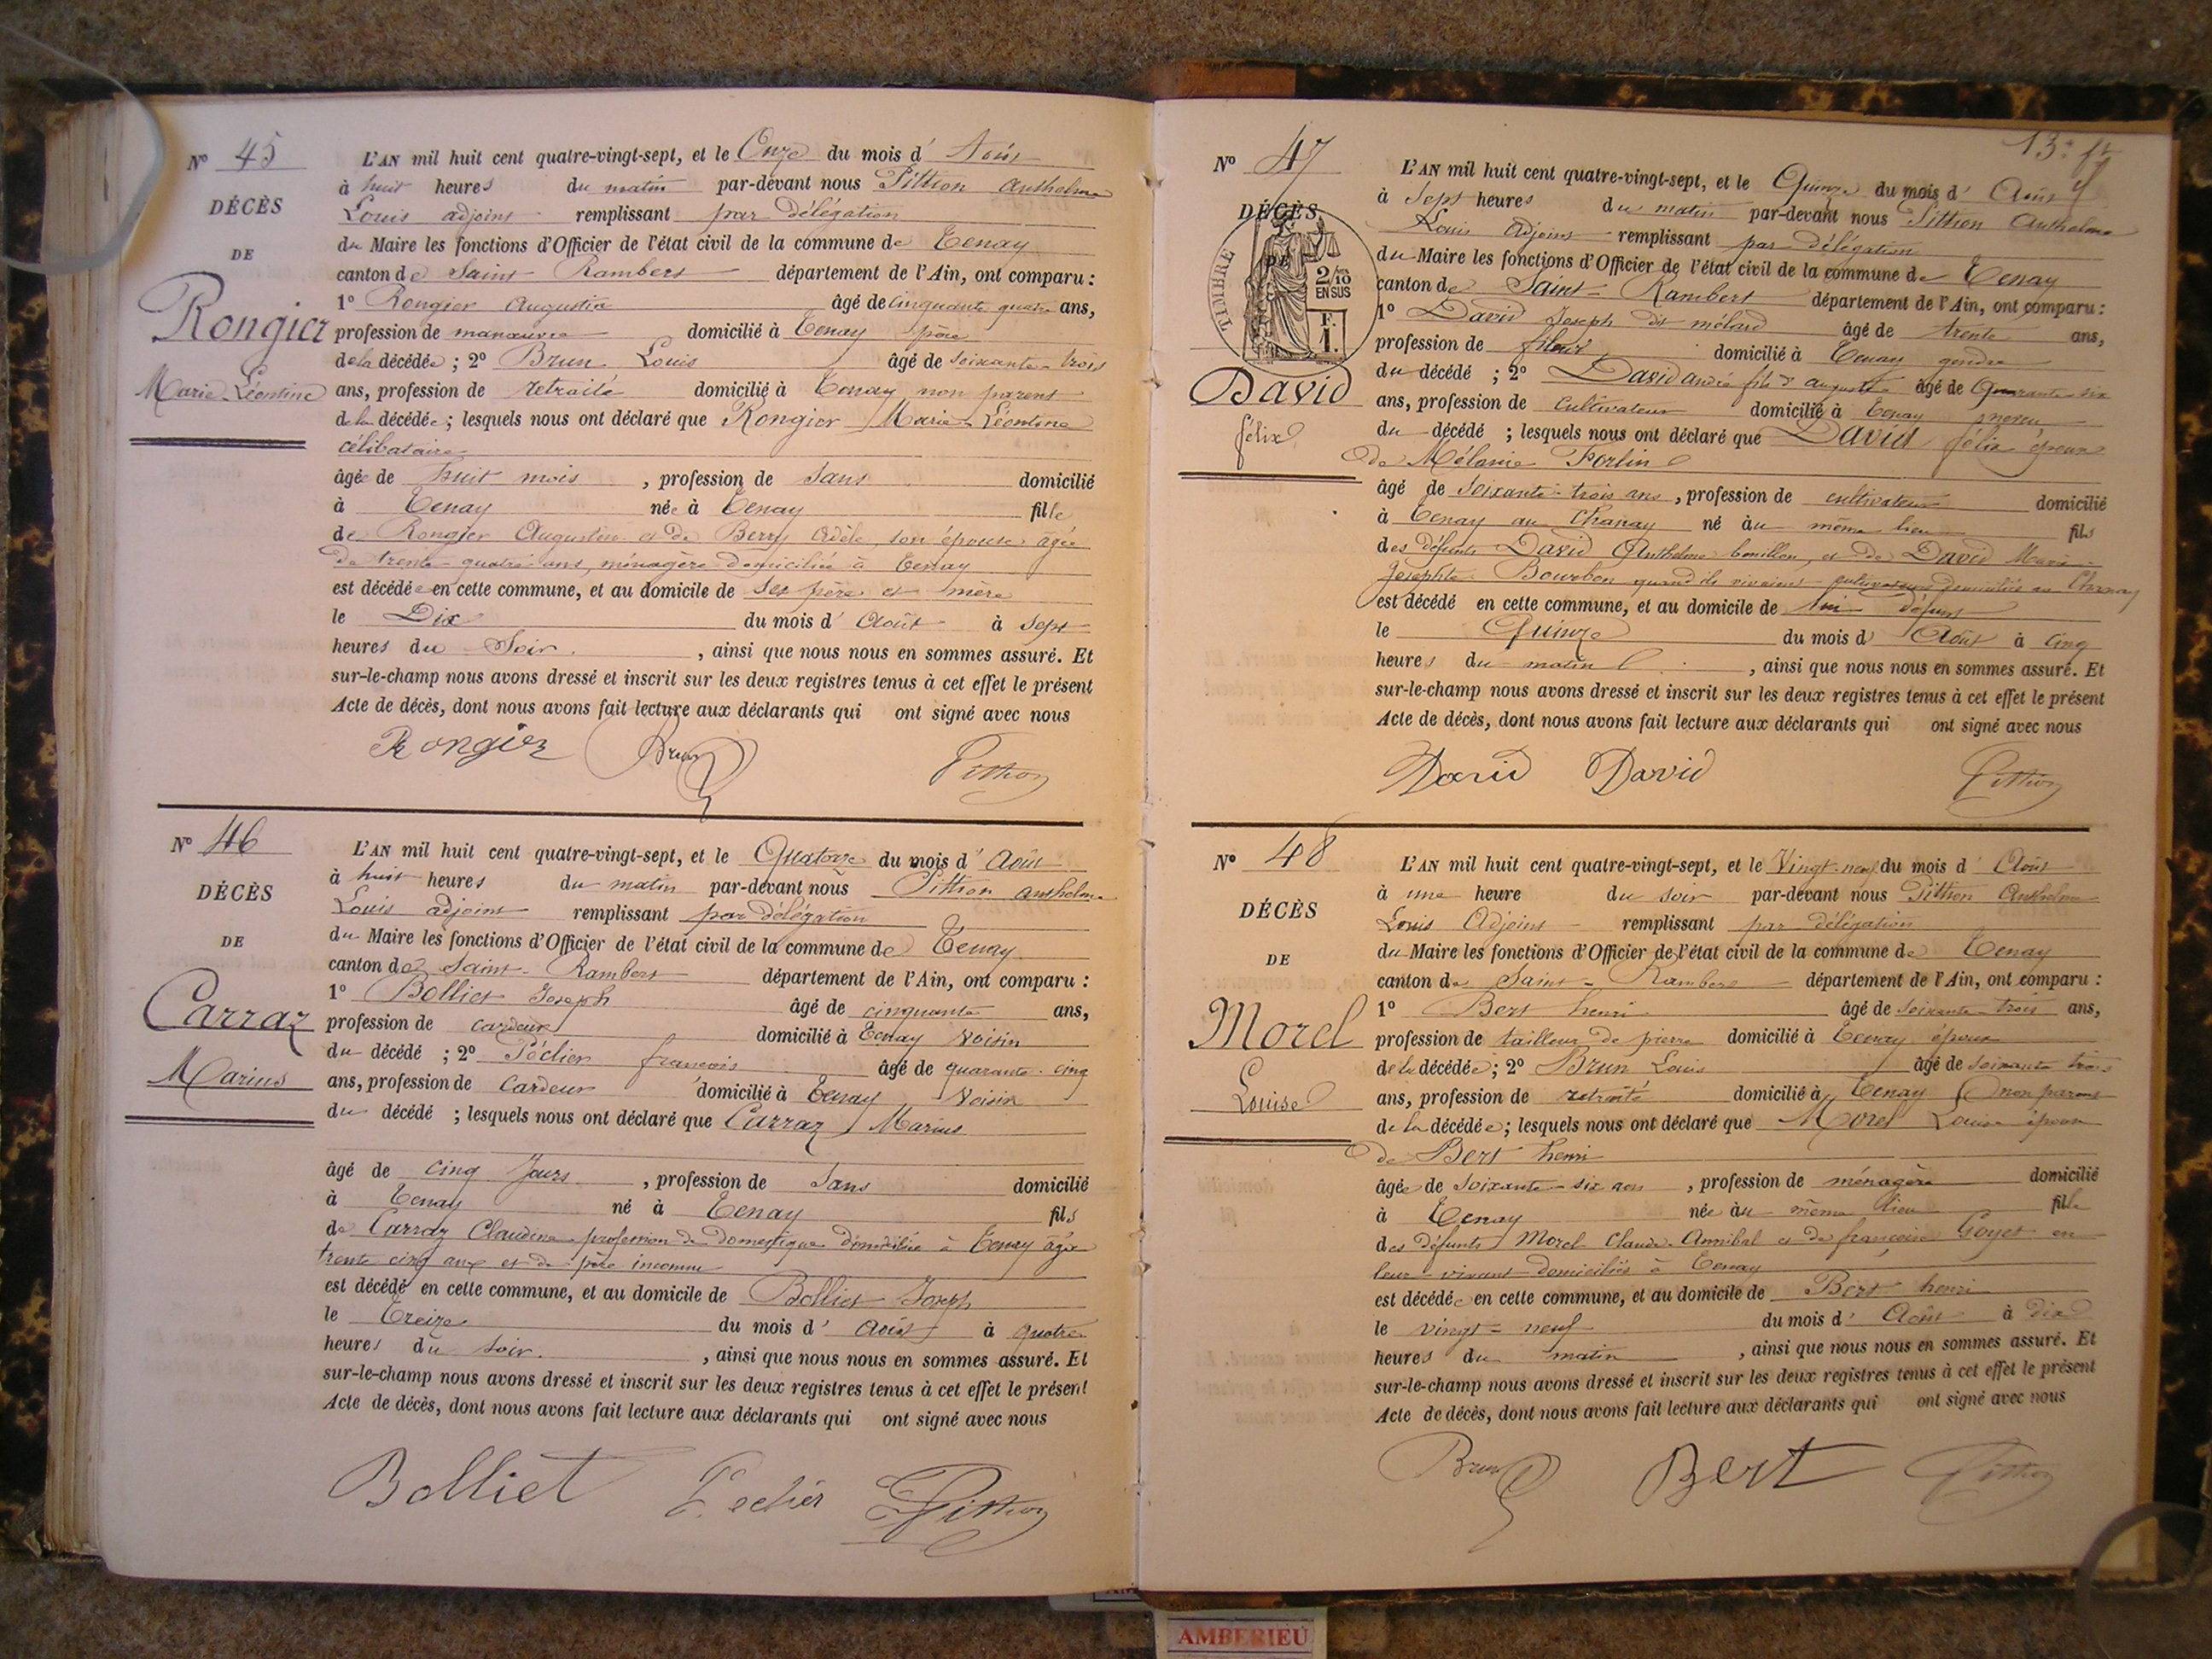 N° 45
DÉCÈS
DE
Rongier
Marie-Léontine
L'AN mil huit cent quatre-vingt-sept, et le Onze du mois d' Août
à huit heures du matin par-devant nous Pittion Anthelme
Louis adjoint remplissant par délégation
du Maire les fonctions d'Officier de l'état civil de la commune de Tenay
canton de Saint-Rambert département de l'Ain, ont comparu :
1° Rongier Augustin âgé de cinquante quatre ans,
profession de manœuvre domicilié à Tenay père
de la décédée ; 2° Brun Louis âgé de soixante-trois
ans, profession de retraité domicilié à Tenay non parent
de la décédée ; lesquels nous ont déclaré que Rongier Marie-Léontine
célibataire
âgée de huit mois , profession de sans domicilié
à Tenay née à Tenay fille
de Rongier Augustin et de Berry Adèle, son épouse âgée
de trente-quatre ans, ménagère domiciliée à Tenay
est décédée en cette commune, et au domicile de ses père et mère
le Dix du mois d' Août à sept
heures du Soir , ainsi que nous nous en sommes assuré. Et
sur-le-champ nous avons dressé et inscrit sur les deux registres tenus à cet effet le présent
Acte de décès, dont nous avons fait lecture aux déclarants qui ont signé avec nous
Rongier Brun Pittion
N° 46
DÉCÈS
DE
Carraz
Marius
L'AN mil huit cent quatre-vingt-sept, et le Quatorze du mois d' Août
à huit heures du matin par-devant nous Pittion anthelme
Louis adjoint remplissant par délégation
du Maire les fonctions d'Officier de l'état civil de la commune de Tenay
canton de Saint-Rambert département de l'Ain, ont comparu :
1° Bolliet Joseph âgé de cinquante ans,
profession de cardeur domicilié à Tenay voisin
du décédé ; 2° Péclier françois âgé de quarante-cinq
ans, profession de cardeur domicilié à Tenay voisin
du décédé ; lesquels nous ont déclaré que Carraz Marius
âgé de cinq jours , profession de sans domicilié
à Tenay né à Tenay fils
de Carraz Claudine profession de domestique domiciliée à Tenay âgée
trente cinq ans et de père inconnu
est décédé en cette commune, et au domicile de Bolliet Joseph
le Treize du mois d' Août à quatre
heures du soir. , ainsi que nous nous en sommes assuré. Et
sur-le-champ nous avons dressé et inscrit sur les deux registres tenus à cet effet le présent
Acte de décès, dont nous avons fait lecture aux déclarants qui ont signé avec nous
Bolliet Peclier Pittion
13e ft
N° 47
DÉCÈS
DE
TIMBRE
2/10
EN SUS
F.
1.
David
félix
L'AN mil huit cent quatre-vingt-sept, et le Quinze du mois d' Août
à Sept heures du matin par-devant nous Pittion Anthelme
Louis Adjoint remplissant par délégation
du Maire les fonctions d'Officier de l'état civil de la commune de Tenay
canton de Saint-Rambert département de l'Ain, ont comparu :
1° David Joseph dit mélard âgé de trente ans,
profession de fileur domicilié à Tenay gendre
du décédé ; 2° David andré fils d' auguste âgé de Quarante-six
ans, profession de cultivateur domicilié à Tenay neveu
du décédé ; lesquels nous ont déclaré que David félix époux
de Mélanie
âgé de soixante-trois ans , profession de cultivateur domicilié
à Tenay au Chanay né au même lieu fils
des défunts David Anthelme bouillon, et de David Marie
Josephte Bourbon quand ils vivaient cultivateurs domiciliés au Chanay
est décédé en cette commune, et au domicile de lui défunt
le Quinze du mois d' Août à cinq
heures du matin , ainsi que nous nous en sommes assuré. Et
sur-le-champ nous avons dressé et inscrit sur les deux registres tenus à cet effet le présent
Acte de décès, dont nous avons fait lecture aux déclarants qui ont signé avec nous
David David Pittion
N° 48
DÉCÈS
DE
Morel
Louise
L'AN mil huit cent quatre-vingt-sept, et le Vingt-neuf du mois d' Août
à une heure du soir par-devant nous Pittion Anthelme
Louis Adjoint remplissant par délégation
du Maire les fonctions d'Officier de l'état civil de la commune de Tenay
canton de Saint-Rambert département de l'Ain, ont comparu :
1° Bert henri âgé de soixante-trois ans,
profession de tailleur de pierre domicilié à Tenay époux
de la décédée ; 2° Brun Louis âgé de soixante trois
ans, profession de retraité domicilié à Tenay non parent
de la décédée ; lesquels nous ont déclaré que Morel Louise épouse
de Bert henri
âgée de soixante-six ans , profession de ménagère domicilié
à Tenay née au même lieu fille
des défunts Morel Claude-Annibal et de françoise Goyet en
leur vivant domiciliés à Tenay
est décédée en cette commune, et au domicile de Bert henri
le vingt-neuf du mois d' Août à dix
heures du matin , ainsi que nous nous en sommes assuré. Et
sur-le-champ nous avons dressé et inscrit sur les deux registres tenus à cet effet le présent
Acte de décès, dont nous avons fait lecture aux déclarants qui ont signé avec nous
Brun Bert Pittion
AMBERIEU